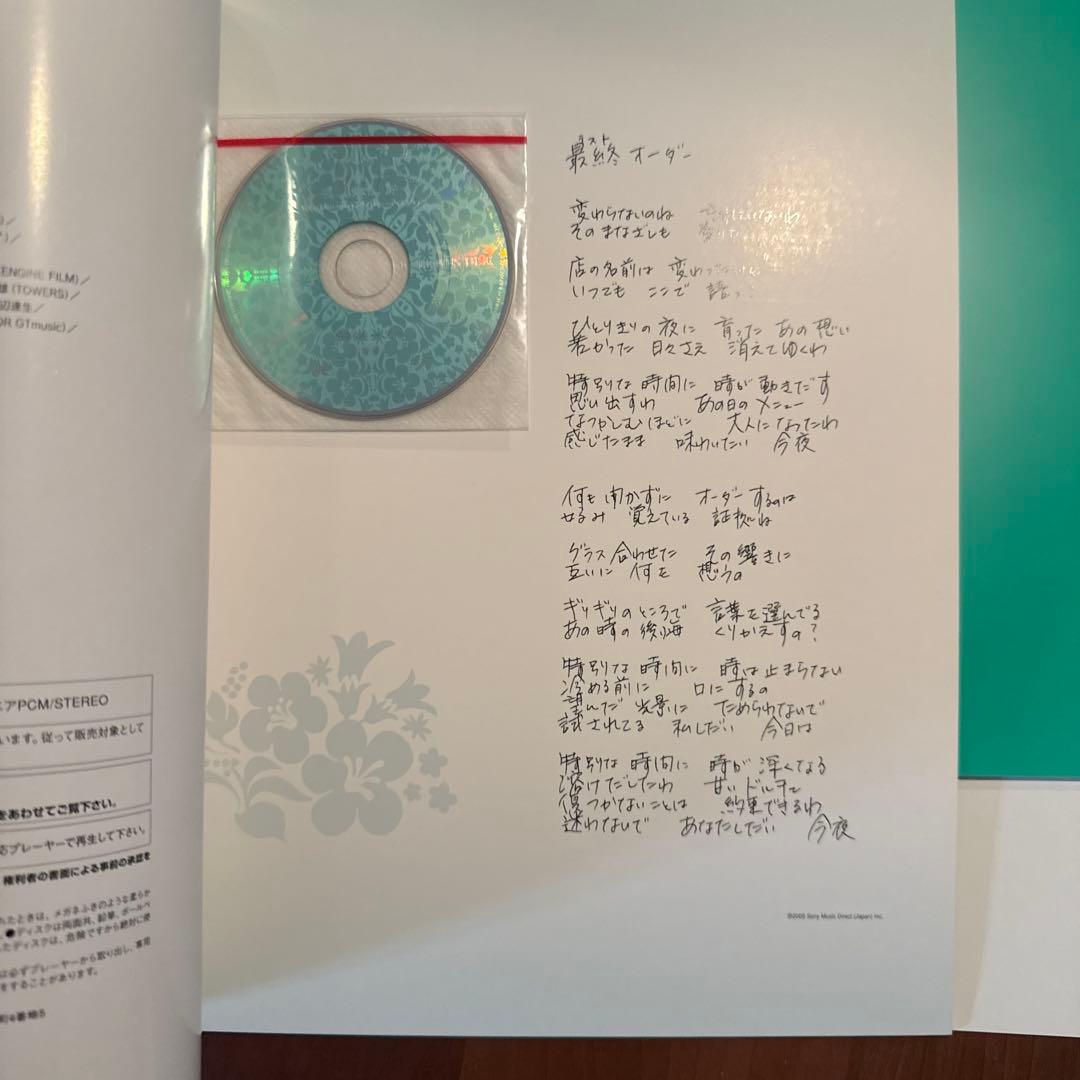 ENGINE FILM)／
雄 (TOWERS)／
辺達生／
OR GTmusic)／
ニアPCM/STEREO
います。従って販売対象として
をあわせてご覧下さい。
応プレーヤーで再生して下さい。
権利者の書面による事前の承認を
れたときは、メガネふきのような柔らか
●ディスクは両面共、鉛筆、ボールペ
たディスクは、危険ですから絶対に使
は必ずプレーヤーから取り出し、専用
をすることがあります。
町6番地5
最終 ラスト オーダー
変わらないのね
そのまなざしも
店の名前は 変わっ
いつでも ここで 語っ
ひとりきりの夜に 育った あの想い
若かった 日々さえ 消えてゆくわ
特別な 時間に 時が 動きだす
思い出すわ あの日の メニュー
なつかしむほどに 大人になったわ
感じたまま 味わいたい 今夜
何も 聞かずに オーダーするのは
好み 覚えている 証拠ね
グラス 合わせた その響きに
互いに 何を 想うの
ギリギリの ところで 言葉を選んでる
あの時の 後悔 くりかえすの?
特別な 時間に 時は止まらない
冷める前に 口にするの
望んだ 光景に ためらわないで
試されてる 私しだい 今日は
特別な 時間に 時が 深くなる
溶けだしたわ 甘い ドルチェ
傷つかないことは 約束できるわ
迷わないで あなたしだい 今夜
©2005 Sony Music Direct (Japan) Inc.